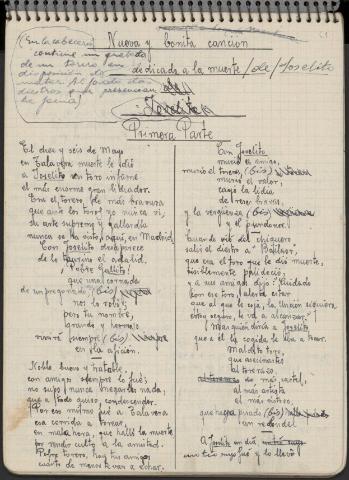 (En la cabecera
contiene un grabado
de un torero en
disposición de
matar. Al fondo dos
diestros que presencian
la faena)
Nueva y bonita canción
dedicada a la muerte / de / Joselito
Joselito
Primera Parte
El diez y seis de Mayo
en Talavera muerte le dió
a Joselito un toro infame
el más enorme gran lidiador.
Era el torero, de más braveza
que ante los toros yo nunca vi,
su arte supremo y gallardía
nunca se ha visto, aquí, en Madrid.
Con Joselito desaparece
de lo taurino el adalid.
¡Pobre Gallito!
que una cornada
de un pregonado, (bis)
nos lo robó;
pero tu nombre,
grande y hermoso
vivirá siempre (bis)
en la afición.
Noble, bueno y tratable,
con amigos siempre lo fué;
no supo nunca negarles nada,
que a todo quiso, condescender.
Por eso mismo fué a Talavera
esa corrida a torear,
en mala hora, que halló la muerte
por rendir culto a la amistad.
Pobre torero, hoy tus amigos,
cuánto de menos te van a echar.
Con Joselito
murió el amigo,
murió el torero, (bis)
murió el valor,
cayó la lidia
de reses bravas,
y la vergüenza (bis)
y el pundonor.
Cuando vió del chiquero
salir el diestro a "Bailaor",
que era el toro que le dió muerte,
visiblemente palideció;
y a sus amigos dijo: Cuidado
con ese toro, alerta estar
que al que le coja, la Unción siquiera,
estoy seguro, le va a alcanzar.
¡Mas quién diría a Joselito
que a él la cogida le iba a tocar.
Maldito toro,
que asesinaste
al torerazo,
de más cartel,
al más artista,
el más airoso,
que haya pisado (bis)
un redondel
A Joselito un día
un tío suyo fué y lo llevó